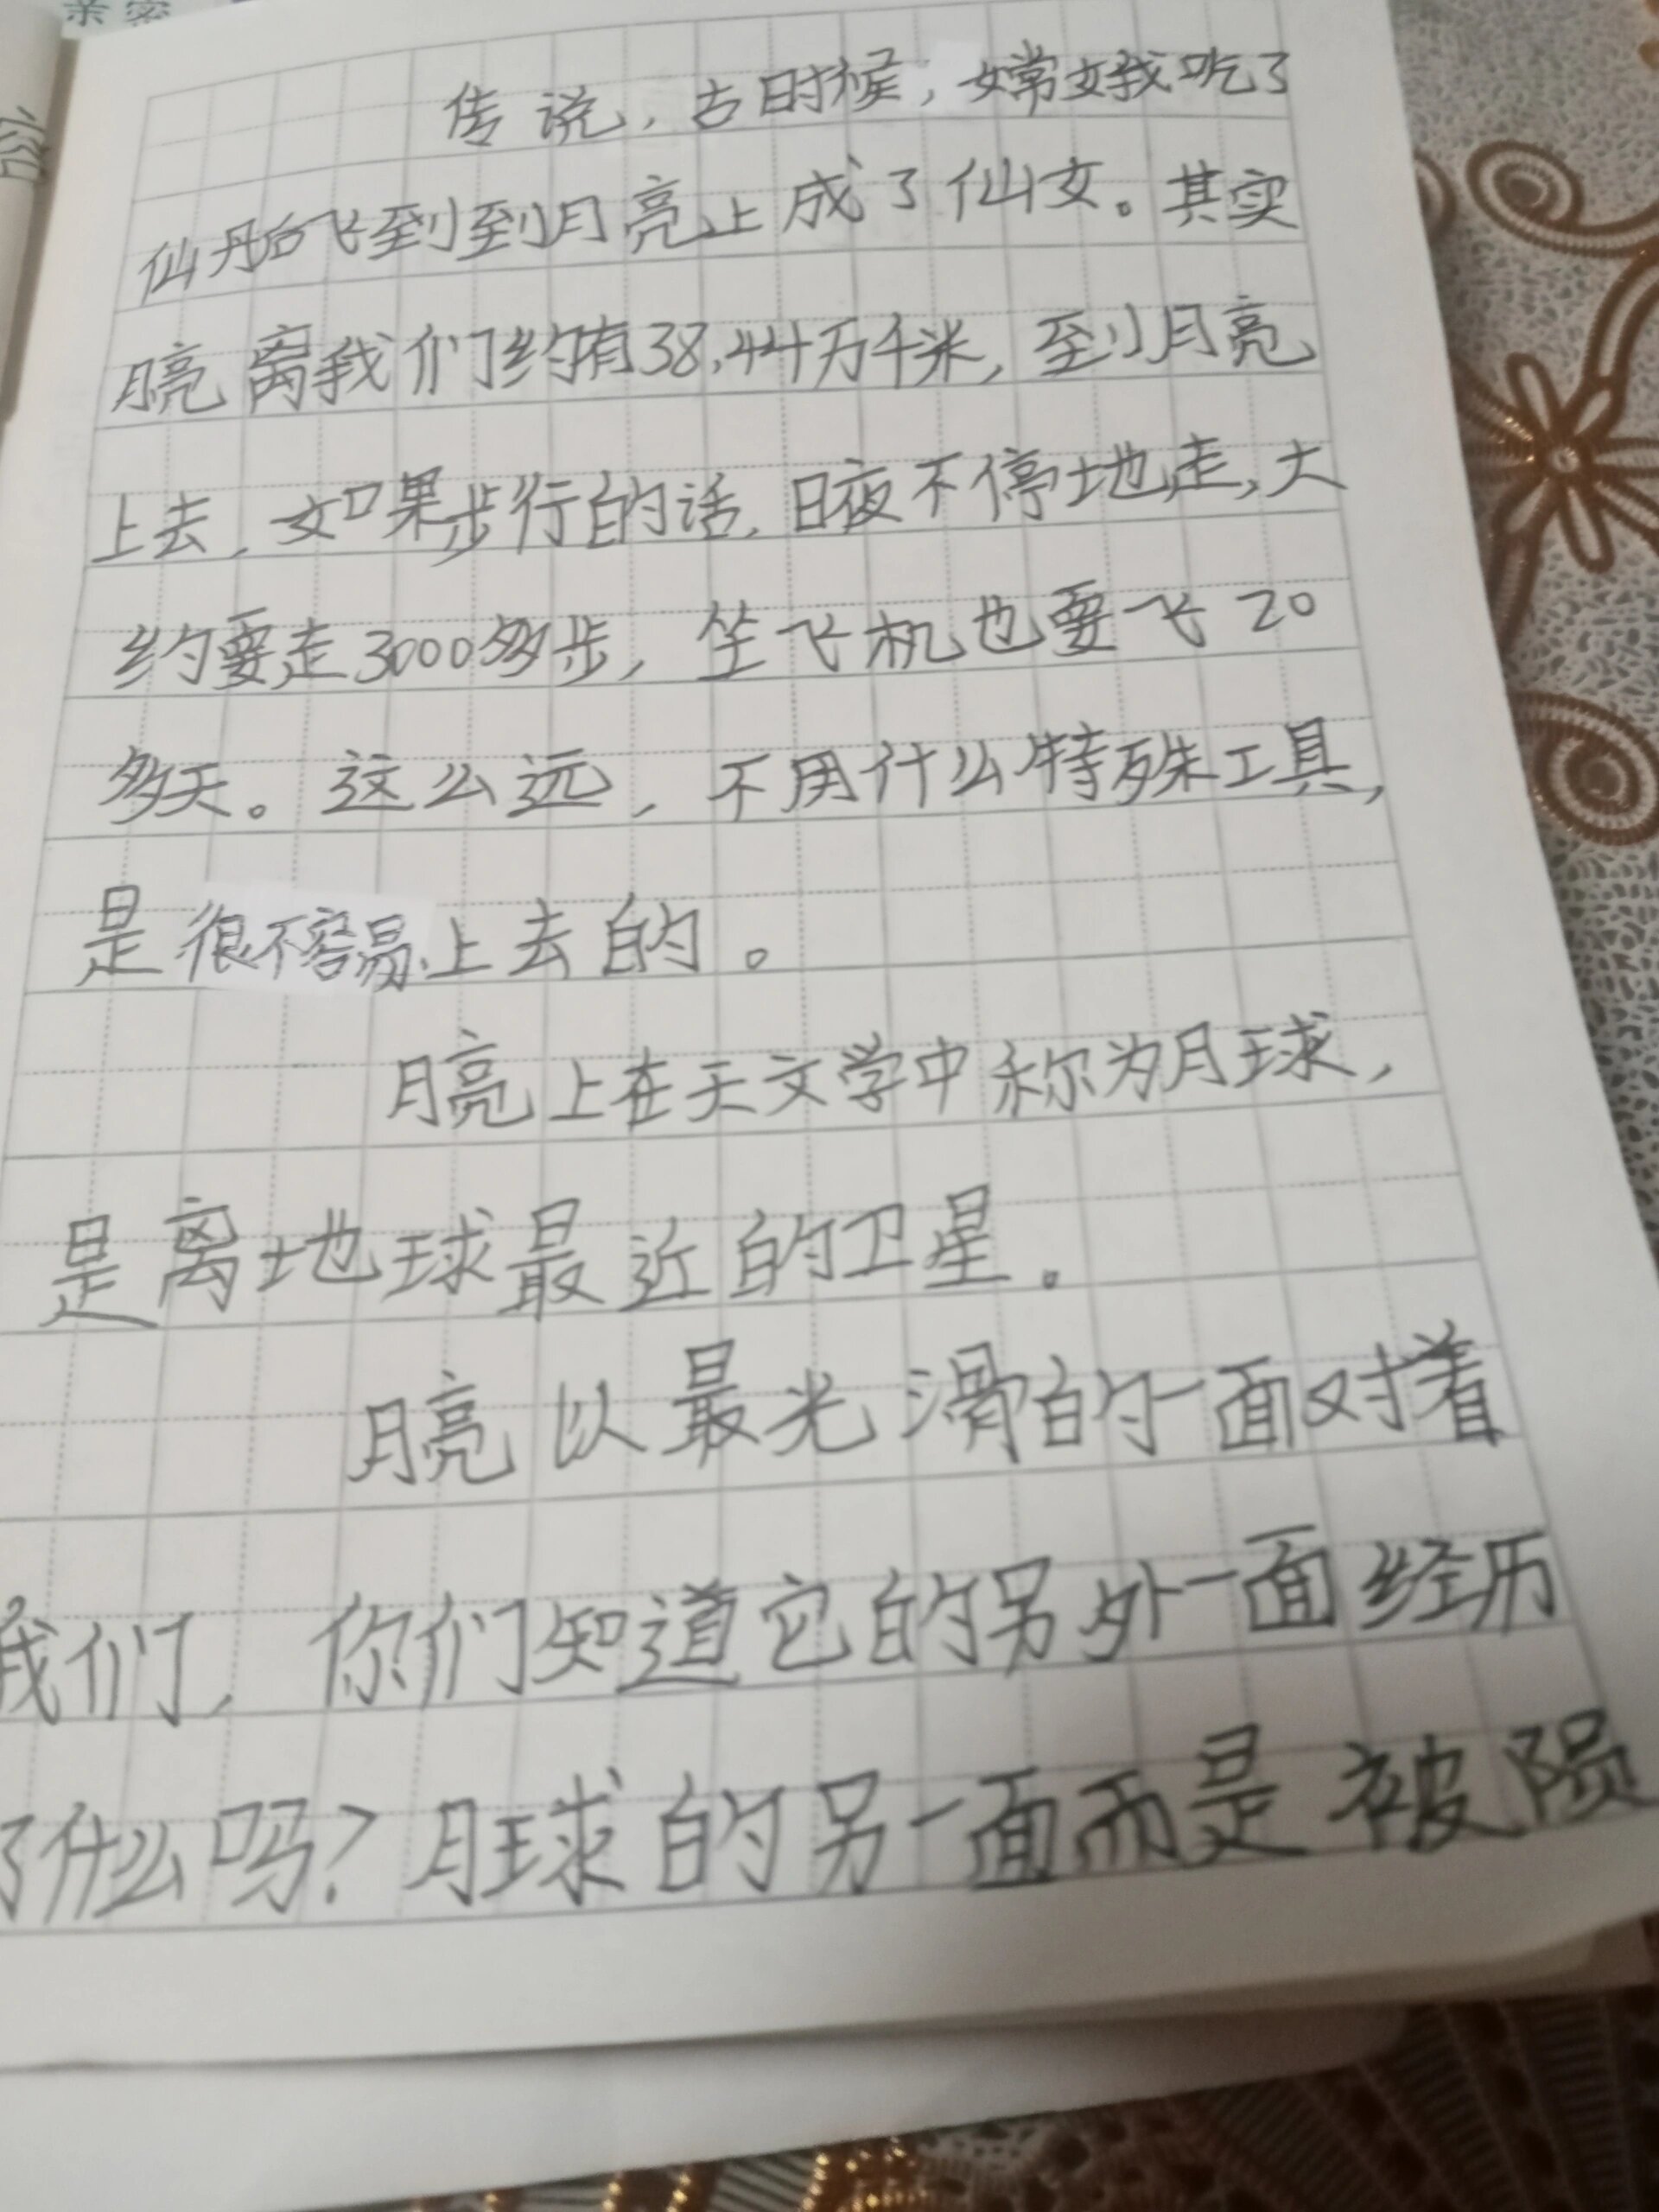 亲密
传说，古时候，嫦娥吃了
仙丹后飞到到月亮上成了仙女。其实
月亮离我们约有38.44万千米，到月亮
上去，如果步行的话，日夜不停地走，大
约要走3000多步，坐飞机也要飞20
多天。这么远，不用什么特殊工具，
是很不容易上去的。
月亮上在天文学中称为月球，
是离地球最近的卫星。
月亮以最光滑的一面对着
我们，你们知道它的另外一面经历
了什么吗？月球的另一面而是被陨